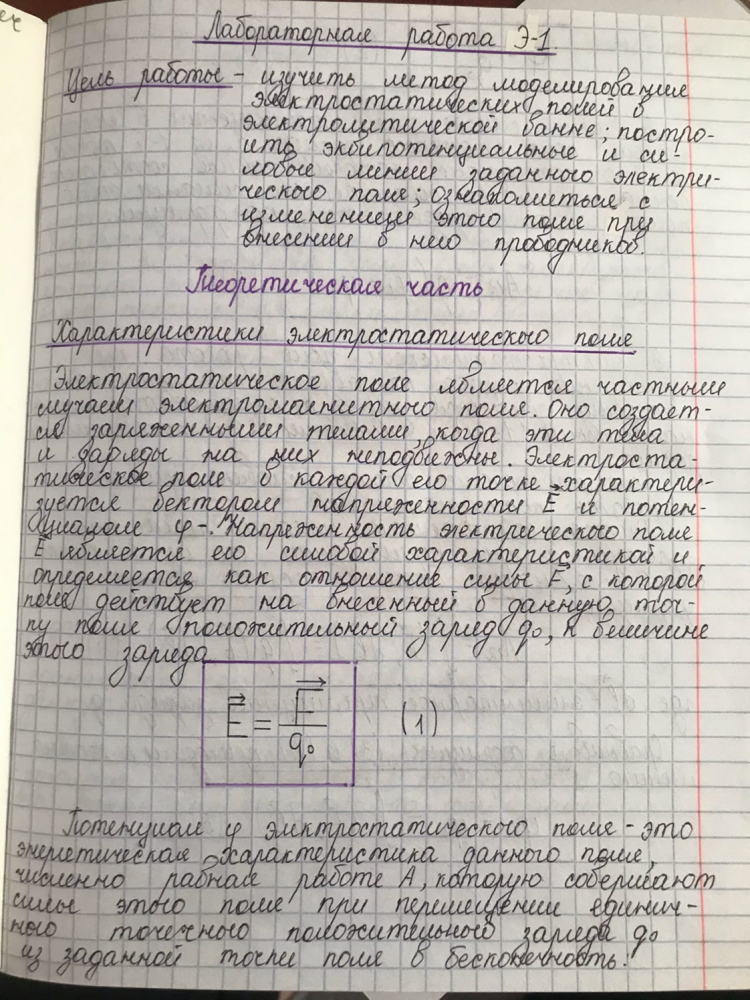 Лабораторная работа Э-1.
Цель работы - изучить метод моделирования
электростатических полей в
электролитической ванне; постро-
ить эквипотенциальные и си-
ловые линии заданного электри-
ческого поля; ознакомиться с
изменением этого поля при
внесении в него проводников.
Теоретическая часть
Характеристики электростатического поля
Электростатическое поле является частным
случаем электромагнитного поля. Оно создает-
ся заряженными телами, когда эти тела
и заряды на них неподвижны. Электроста-
тическое поле в каждой его точке характери-
зуется вектором напряженности E⃗ и потен-
циалом φ-. Напряженность электрического поля
E⃗ является его силовой характеристикой и
определяется как отношение силы F⃗, с которой
поле действует на внесенный в данную точ-
ку поля положительный заряд q₀, к величине
этого заряда
E⃗ = F⃗/q₀ (1)
Потенциал φ электростатического поля - это
энергетическая характеристика данного поля,
численно равная работе А, которую совершают
силы этого поля при перемещении единич-
ного точечного положительного заряда q₀
из заданной точки поля в бесконечность: